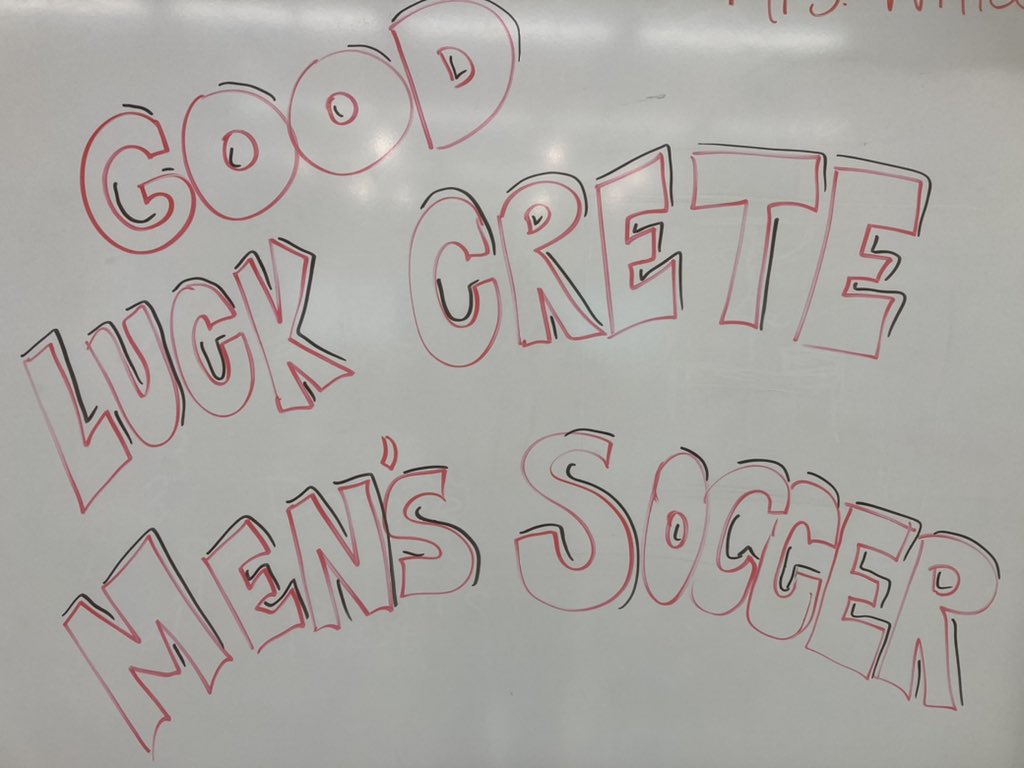 Mrs.
GOOD
LUCK CRETE
MEN'S SOCCER